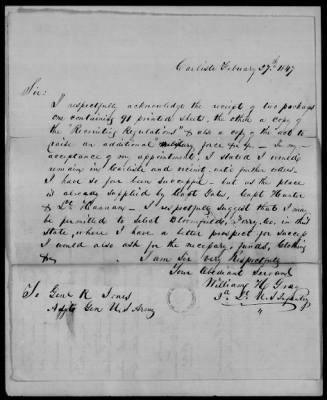 Carlisle February 27th 1847
Sir:
I respectfully acknowledge the receipt of two packages
one containing 91 printed sheets, the other a copy of
the "Recruiting Regulations" & also a copy of the "act to
raise an additional military force &c &c - In my
acceptance of my appointment, I stated I would
remain in Carlisle and recruit until further orders.
I have so far been but as the place
is already supplied by Capt Hunter
& Lt. Hannan - I respectfully suggest that I may
be permitted to Bloomfield, Perry Co. in this
State, where I have a better prospect for success
I would also ask for the necessary funds, Clothing
&c. I am Sir very Respectfully
Your Obedient Servant
William H. Gray
Lt. U.S. Infantry
To Genl R Jones
Adjt Gen U.S Army